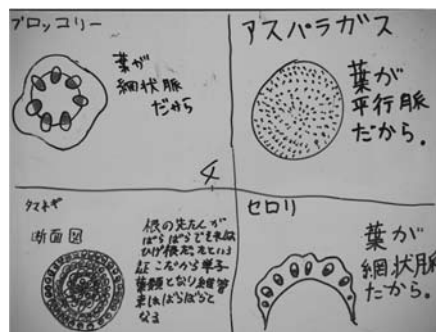 ブロッコリー
葉が
網状脈
だから
アスパラガス
葉が
平行脈
だから。
4
タマネギ
断面図
根の先たんが
ばらばらで
ひげ根だ。
だから単子
葉類となり維管
束はばらばらと
なる
セロリ
葉が
網状脈
だから。